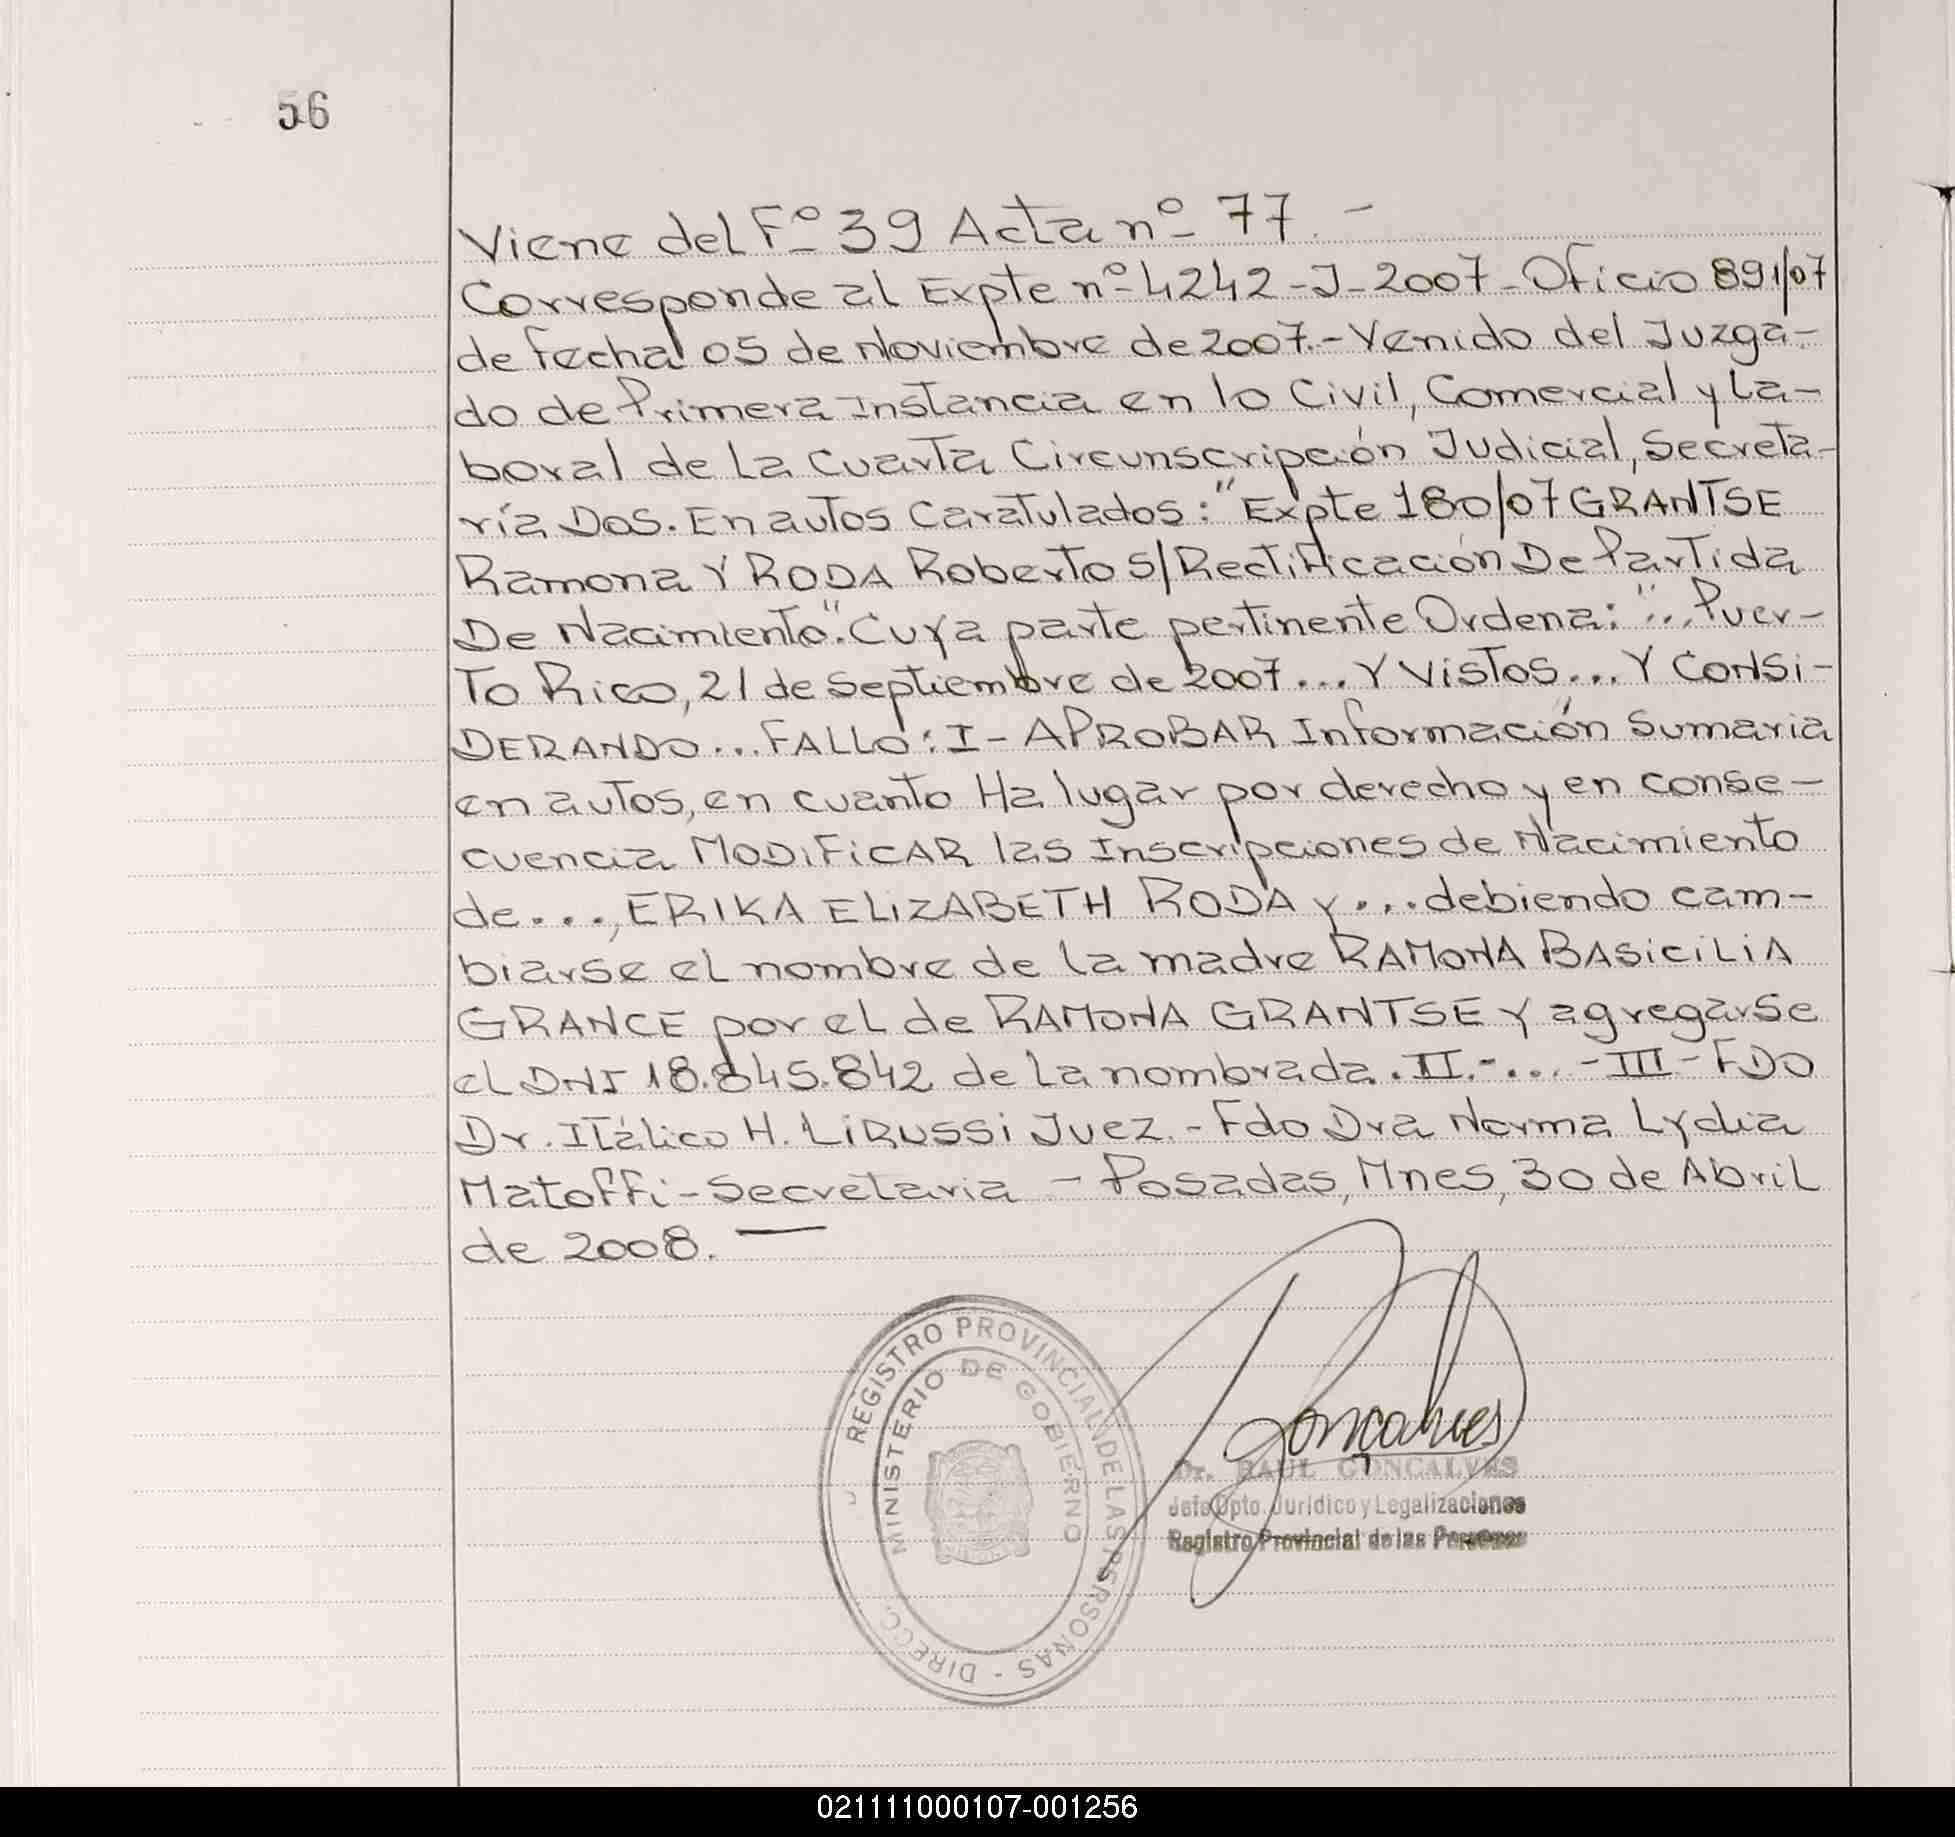 56
Viene del Fº 39 Acta nº 77. -
Corresponde al Expte nº 4242-J-2007-Oficio 891/07
de fecha 05 de Noviembre de 2007.- Venido del Juzga-
do de Primera Instancia en lo Civil, Comercial y La-
boral de La Cuarta Circunscripción Judicial, Secreta-
ría Dos. En autos Caratulados: "Expte 180/07 GRANTSE
Ramona Y RODA Roberto S/Rectificación De Partida
De Nacimiento". Cuya parte pertinente Ordena: "... Puer-
To Rico, 21 de Septiembre de 2007... Y VISTOS... Y CONSI-
DERANDO... FALLO: I - APROBAR Información Sumaria
en autos, en cuanto Ha lugar por derecho y en conse-
cuencia MODIFICAR las Inscripciones de Nacimiento
de..., ERIKA ELIZABETH RODA y... debiendo cam-
biarse el nombre de la madre RAMONA BASICILIA
GRANCE por el de RAMONA GRANTSE Y agregarse
el DNI 18.845.842 de la nombrada. II.-... -III- FDO
Dr. Itálico H. LIRUSSI Juez. - Fdo Dra Norma Lydia
Matoffi - Secretaria - Posadas, Mnes, 30 de Abril
de 2008. —
REGISTRO PROVINCIAL DE LAS PERSONAS - DIRECC.
MINISTERIO DE GOBIERNO
Goncalves
Dr. RAUL GONCALVES
Jefe Dpto. Jurídico y Legalizaciones
Registro Provincial de las Personas
021111000107-001256